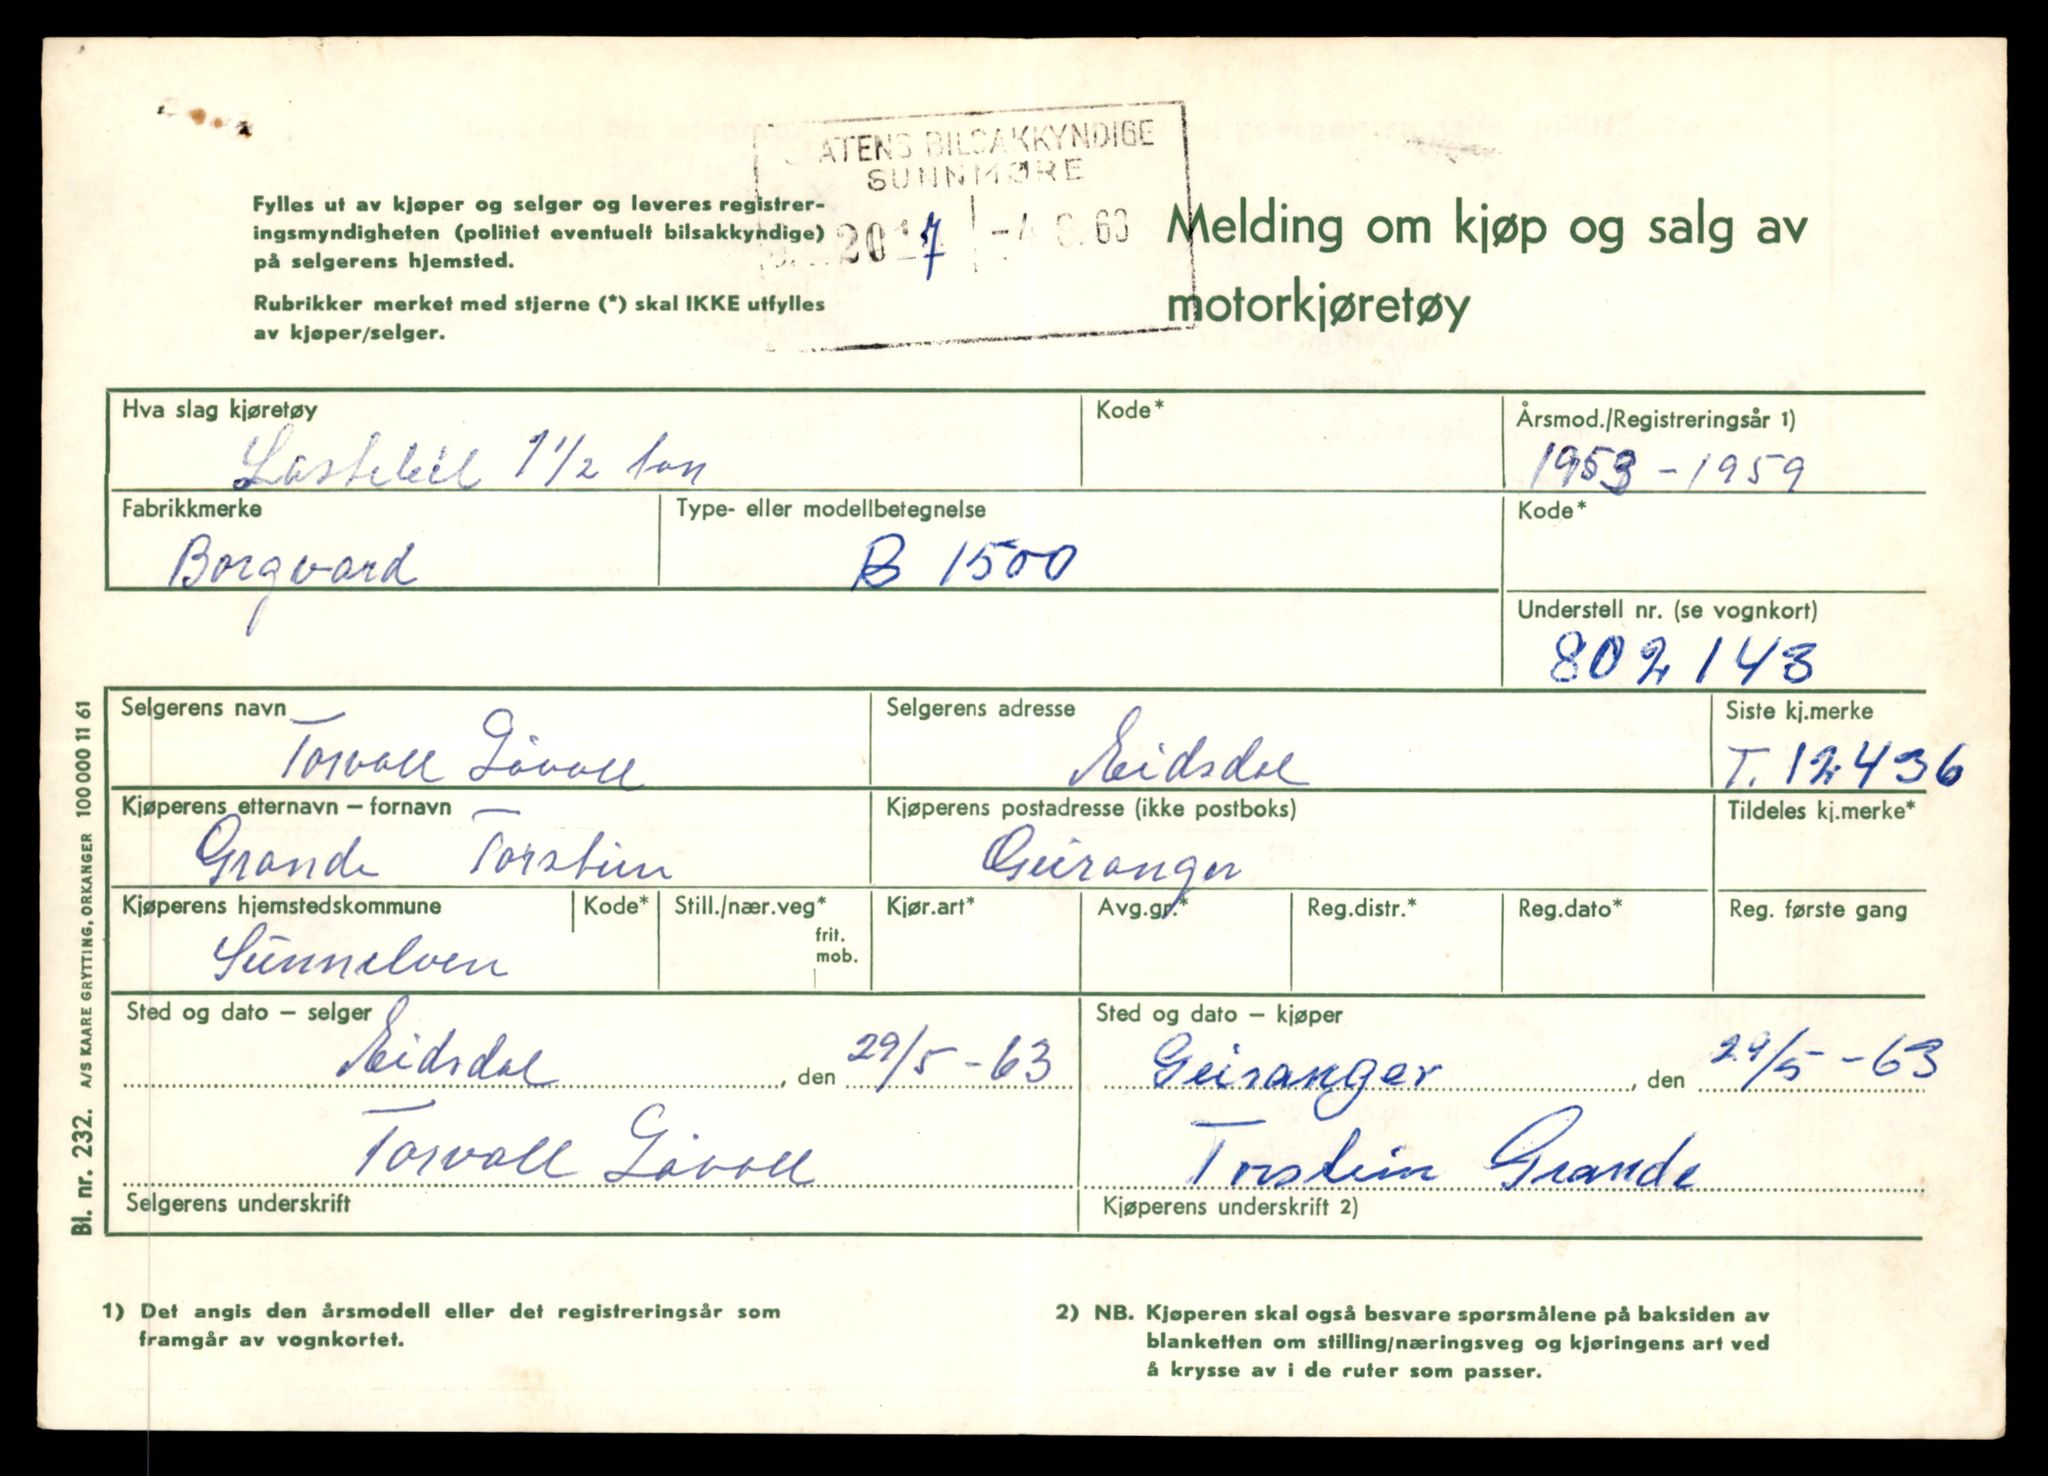 STATENS BILSAKKYNDIGE
SUNNMØRE
2017 -4.6.63
Fylles ut av kjøper og selger og leveres registrer-
ingsmyndigheten (politiet eventuelt bilsakkyndige)
på selgerens hjemsted.
Rubrikker merket med stjerne (*) skal IKKE utfylles
av kjøper/selger.
Melding om kjøp og salg av
motorkjøretøy
Hva slag kjøretøy
Lastebil 1 1/2 ton
Kode*
Årsmod./Registreringsår 1)
1953 - 1959
Fabrikkmerke
Borgvard
Type- eller modellbetegnelse
B 1500
Kode*
Understell nr. (se vognkort)
802143
Selgerens navn
Torvall Løvoll
Selgerens adresse
Eidsdal
Siste kj.merke
T. 12436
Kjøperens etternavn – fornavn
Grande Torstein
Kjøperens postadresse (ikke postboks)
Geiranger
Tildeles kj.merke*
Kjøperens hjemstedskommune
Sunnelven
Kode*
Still./nær.veg*
frit.
mob.
Kjør.art*
Avg.gr.*
Reg.distr.*
Reg.dato*
Reg. første gang
Sted og dato – selger
Eidsdal, den 29/5 - 63
Torvall Løvoll
Selgerens underskrift
Sted og dato – kjøper
Geiranger, den 29/5 - 63
Torstein Grande
Kjøperens underskrift 2)
1) Det angis den årsmodell eller det registreringsår som
framgår av vognkortet.
2) NB. Kjøperen skal også besvare spørsmålene på baksiden av
blanketten om stilling/næringsveg og kjøringens art ved
å krysse av i de ruter som passer.
Bl. nr. 232. A/S KAARE GRYTTING, ORKANGER 100 000 11 61